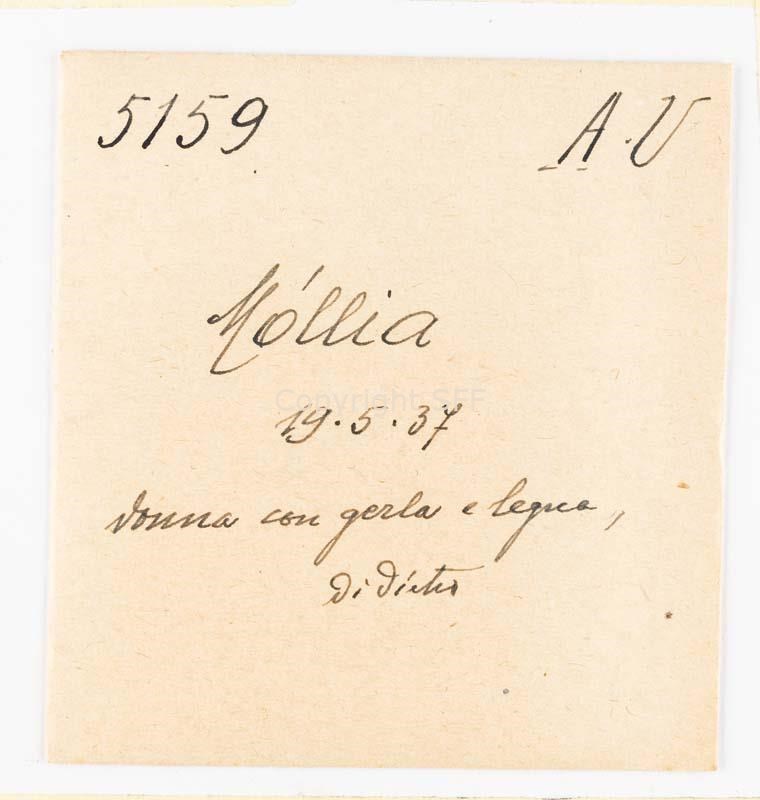 5159 A.V
Móllia
Copyright SFF
19.5.37
donna con gerla e legna,
di dietro